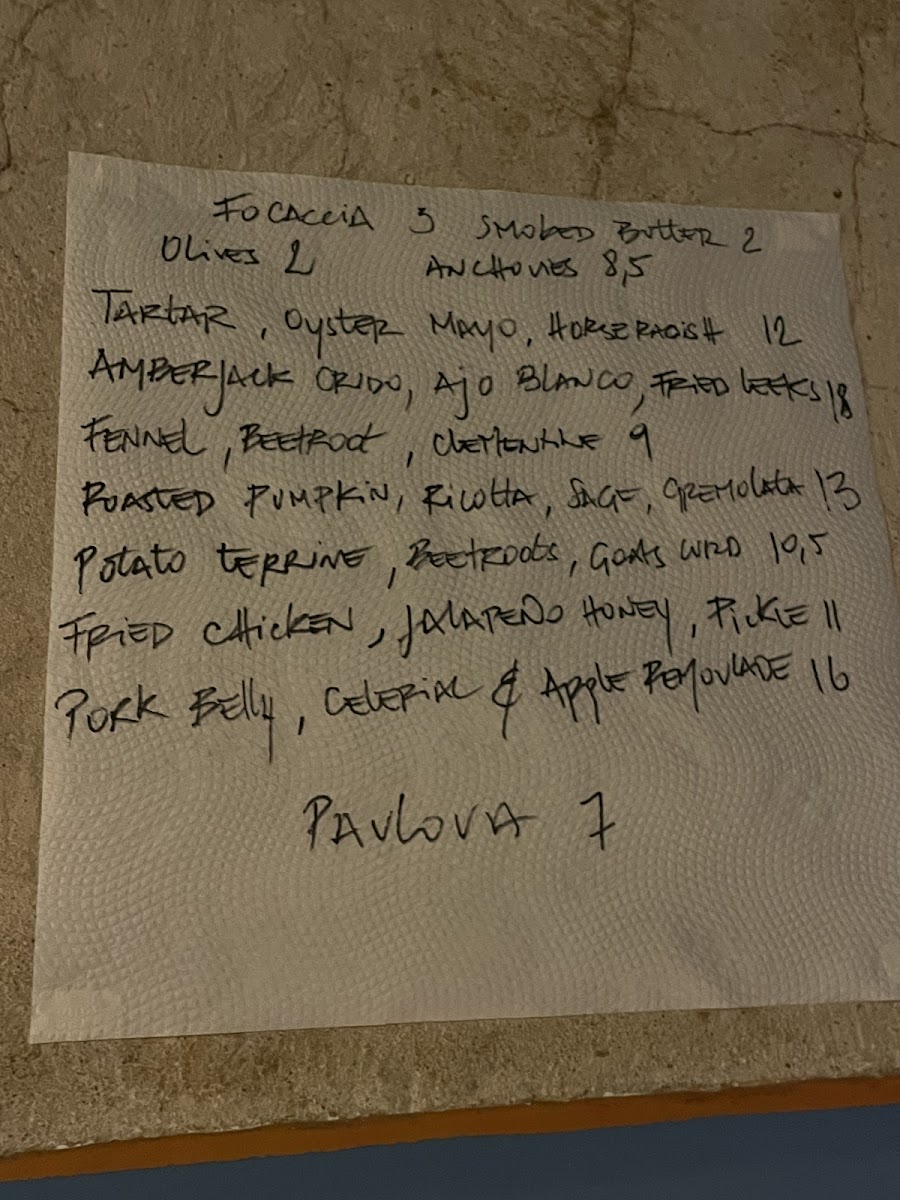 FOCACCIA 3 SMOKED BUTTER 2
OLIVES 2 ANCHOVIES 8,5
TARTAR, OYSTER MAYO, HORSERADISH 12
AMBERJACK CRUDO, AJO BLANCO, FRIED LEEKS 18
FENNEL, BEETROOT, CLEMENTINE 9
ROASTED PUMPKIN, RICOTTA, SAGE, GREMOLATA 13
POTATO TERRINE, BEETROOTS, GOATS CURD 10,5
FRIED CHICKEN, JALAPEÑO HONEY, PICKLE 11
PORK BELLY, CELERIAC & APPLE REMOULADE 16
PAVLOVA 7